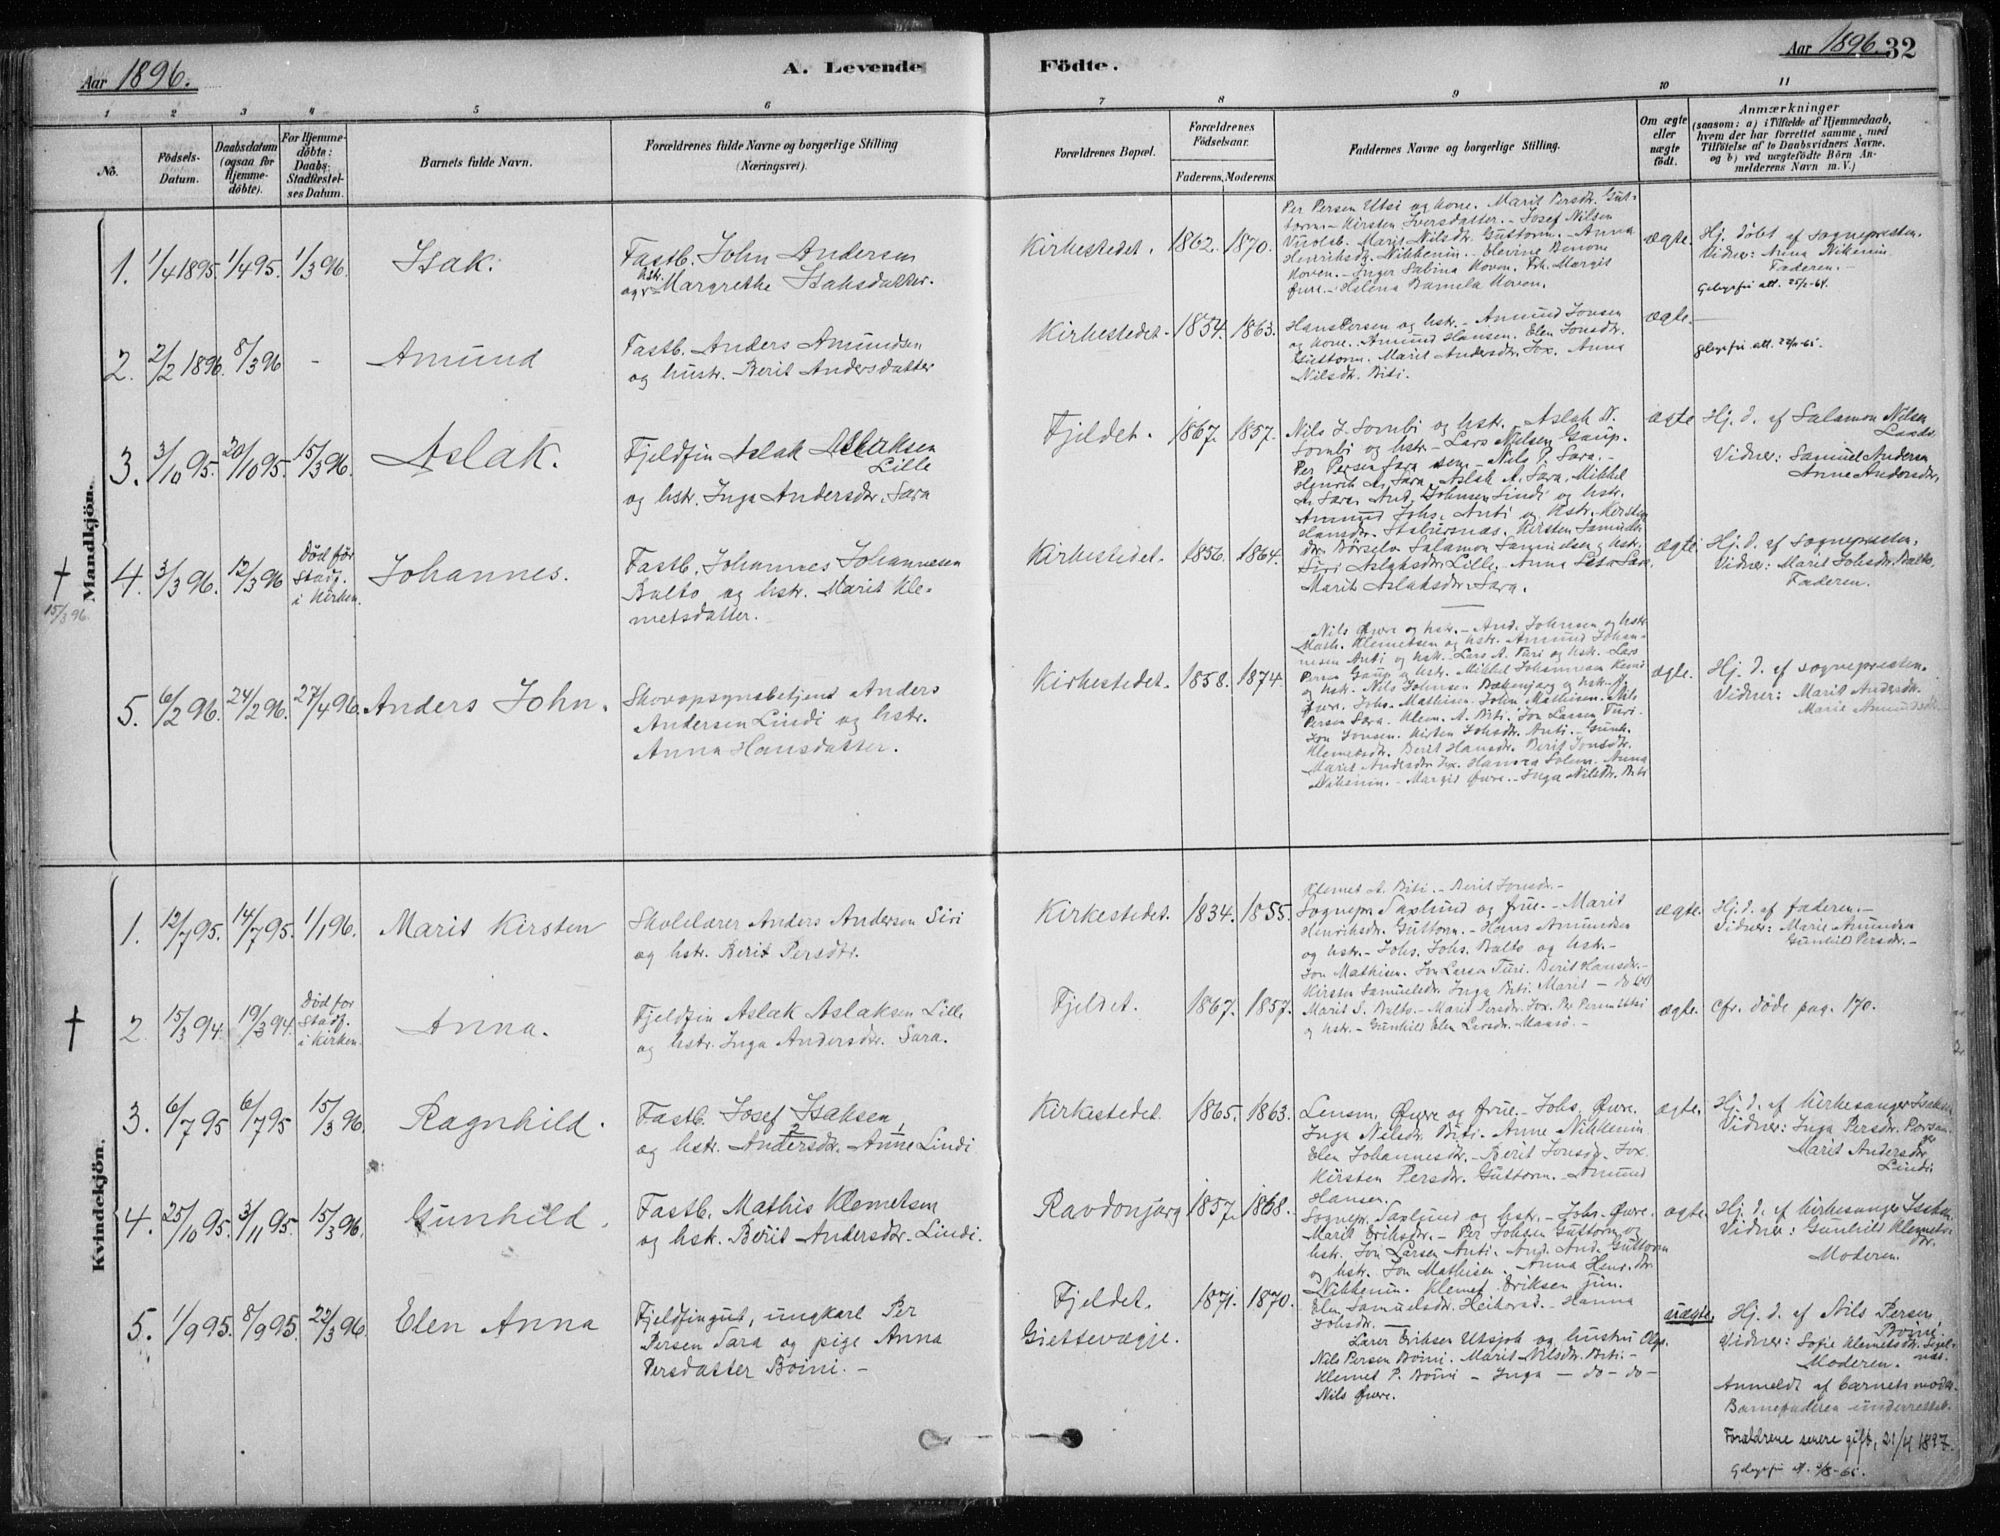 Aar 1896.
A. Levende
Födte.
Aar 1896. 32
1 2 3 4 5 6 7 8 9 10 11
No.
Födsels-
Datum.
Daabsdatum
(ogsaa for
Hjemme-
döbte).
For Hjemme-
döbte:
Daabs-
Stadfæstel-
ses Datum.
Barnets fulde Navn.
Forældrenes fulde Navne og borgerlige Stilling
(Næringsvei).
Forældrenes Bopæl.
Forældrenes
Födselsaar.
Faderens. Moderens.
Faddernes Navne og borgerlige Stilling.
Om ægte
eller
uægte
födt.
Anmærkninger
(saasom: a) i Tilfælde af Hjemmedaab,
hvem der har forrettet samme, med
Tilföielse af to Daabsvidners Navne.
og b) ved uægtefödte Börn An-
melderens Navn m. V.)
Mandkjön.
1. 1/4 1895. 1/4 95. 1/3 96. Isak.
Fastb. John Andersen
og hstr. Margrethe Isaksdatter.
Kirkestedet. 1862. 1870.
Per Persen Utsi og kone. Marit Persdr. Gut-
torm. - Kirsten Iversdatter. - Josef Nilsen
Marit Nilsdr. Guttorm. - Anna
Henriksdr. Nikkenin. -
Hoven. - Inger Sabina Hoven. Frk. Margit
Øvre. - Helena Hoven.
ægte.
Hj. døbt af sognepresten.
Vidner: Anna Nikenin
Faderen. -
2. 2/2 1896. 8/3 96 - Amund
Fastb. Anders Amundsen
og hustr. Berit Andersdatter
Kirkestedet. 1854. 1863.
Hans Persen og hstr. - Amund Jonsen
og kone. Amund Hansen. Elen Jonsdr.
Guttorm. Marit Andersdr. Fox. Anna
Nilsdr. Biti.
ægte.
3. 3/10 95. 20/10 95. 15/3 96. Aslak.
Fjeldfin Aslak Aslaksen
Lille
og hstr. Inga Andersdr. Sara
Fjeldet. 1867. 1857.
Nils J. Sombi og hstr. Aslak N.
Sombi og hstr - Lars Nielsen Gaup.
Per Persen Sara sen. - Nils P. Sara. -
Henrik A. Sara. Aslak A. Sara. Mikkel
A. Sara. And. Johnsen Lindi og hstr.
ægte
Hj. d. af Salamon Nilsen
Vidner: Samuel Andersen
Anne Andersdr.
† 15/3 96.
4. 3/3 96. 12/3 96
Død før
Stadf.
i Kirken.
Johannes.
Fastb. Johannes Johannesen
Balto og hstr. Marit Kle-
metsdatter.
Kirkestedet. 1856. 1864.
Amund Johs. Anti og hstr. Kirsten
Hansdr. Stabursnæs. Kirsten Samuels-
dr. Børselv. Salamon Samuelsen og hstr.
Siri Aslaksdr. Lille. Anna Sara.
Marit Aslaksdr. Sara.
ægte
Hj. d. af sognepresten.
Vidner: Marit Johsdr. Balto,
Faderen.
5. 6/2 96. 24/2 96. 27/4 96. Anders John.
Skovopsynsbetjent Anders
Andersen Lindi og hstr.
Anna Hansdatter.
Kirkestedet. 1858. 1874
Nils Øvre og hstr. - And. Johnsen og hstr.
Math. Klemetsen og hstr. Amund Johan-
nesen Anti og hstr. Lars A. Turi og hstr. Lars
Persen Gaup og hstr. Mikkel Johannesen
og hstr. Nils Johnsen Bakkenjarg og hstr.
Øvre. Johs. Mathisen. John Mathisen. Nils
Persen Sara. Klem. A. Biti. Jon Larsen Turi.
Jon Jonsen. Kirsten Johsdr. Anti. - Gunh.
Klemetsdr. Berit Hansdr. Berit Jonsdr.
Marit Andersdr. Fox. Anna
Nikkenin. - Margit Øvre. - Inga Nilsdr. Biti
ægte.
Hj. d. af sognepresten.
Vidner: Marit Andersdr.
Marie Amundsdr.
Kvindekjön.
1. 12/7 95. 14/7 95. 1/1 96. Marit Kirsten
Skolelærer Anders Andersen Siri
og hstr. Berit Persdtr.
Kirkestedet. 1834. 1855.
Klemet A. Biti. - Berit Jonsdr. -
Sognepr. Saxlund og frue. - Marit
Henriksdr. Guttorm. - Hans Amundsen
og hstr. - Johs. Johs. Balto og hstr. -
Jon Mathisen. Jon Larsen Turi. Berit Hansdr. -
Kirsten Samuelsdr. Inga Biti. Marit - do
Marit S. Balto. - Marit Persdr. Fox. Per Persen Utsi
og hstr. - Gunhild Elen Larsdr. Maasø. -
ægte.
Hj. d. af faderen. -
Vidner: Marie Amundsen
Gunhild Persdr. -
† 2. 15/3 94. 19/3 94.
Død før
Stadf.
i Kirken
Anna.
Fjeldfin Aslak Aslaksen Lille
og hstr. Inga Andersdtr. Sara.
Fjeldet. 1867. 1857.
ægte.
Cfr. døde pag. 170.
3. 6/7 95 6/7 95 15/3 96. Ragnhild.
Fastb. Josef Isaksen
og hstr. Andersdr. Anne Lindi
Kirkestedet. 1865. 1863.
Lensm. Øvre og frue. - Johs. Øvre.
Inga Nilsdr. Biti. - Anne Nikkenin
Elen Johannesdr. - Berit Jonsdr. Fox.
Kirsten Persdr. Guttorm. - Amund
Hansen.
ægte
Hj. d. af Kirkesanger Isaksen
Vidner: Inga Persdr. Porsan-
ger
Marit Andersdr.
Lindi
4. 25/10 95. 3/11 95. 15/3 96. Gunhild.
Fastb. Mathis Klemetsen
og hstr. Berit Andersdtr. Lindi.
Ravdonjarg 1857. 1868.
Sognepr. Saxlund og hstr. - Johs. Øvre.
Marit Eriksdr. - Per Johsen Guttorm og
hstr. Jon Larsen Anti. And. And. Guttorm
og hstr. Jon Mathisen. Anna Henr. dr.
Nikkenin. Klemet Eriksen jun.
Elen Samuelsdr. Hanna
Johsdr. -
ægte
Hj. d. af Kirkesanger Isaksen
Vidner: Gunhild Klemets-
dr.
Moderen.
5. 1/9 95. 8/9 95. 22/3 96. Elen Anna
Fjeldfingut, ungkarl Per
Persen Sara og pige Anna
Persdatter Boini. -
Fjeldet.
Giettevægje.
1871. 1870.
Lærer Eriksen Utsjok og hustru Olga.
Nils Persen Boini. Marit Nilsdr. Biti. -
Klemet P. Boini - Inga - do - do -
Nils Øvre.
uægte.
Hj. d. af Nils Persen
Boini.
Vidner: Sofie Klemetsdr.
Moderen.
Anmeldt af barnets moder.
Barnefaderen underrettet.
Forældrene senere gift, 21/4 1897.